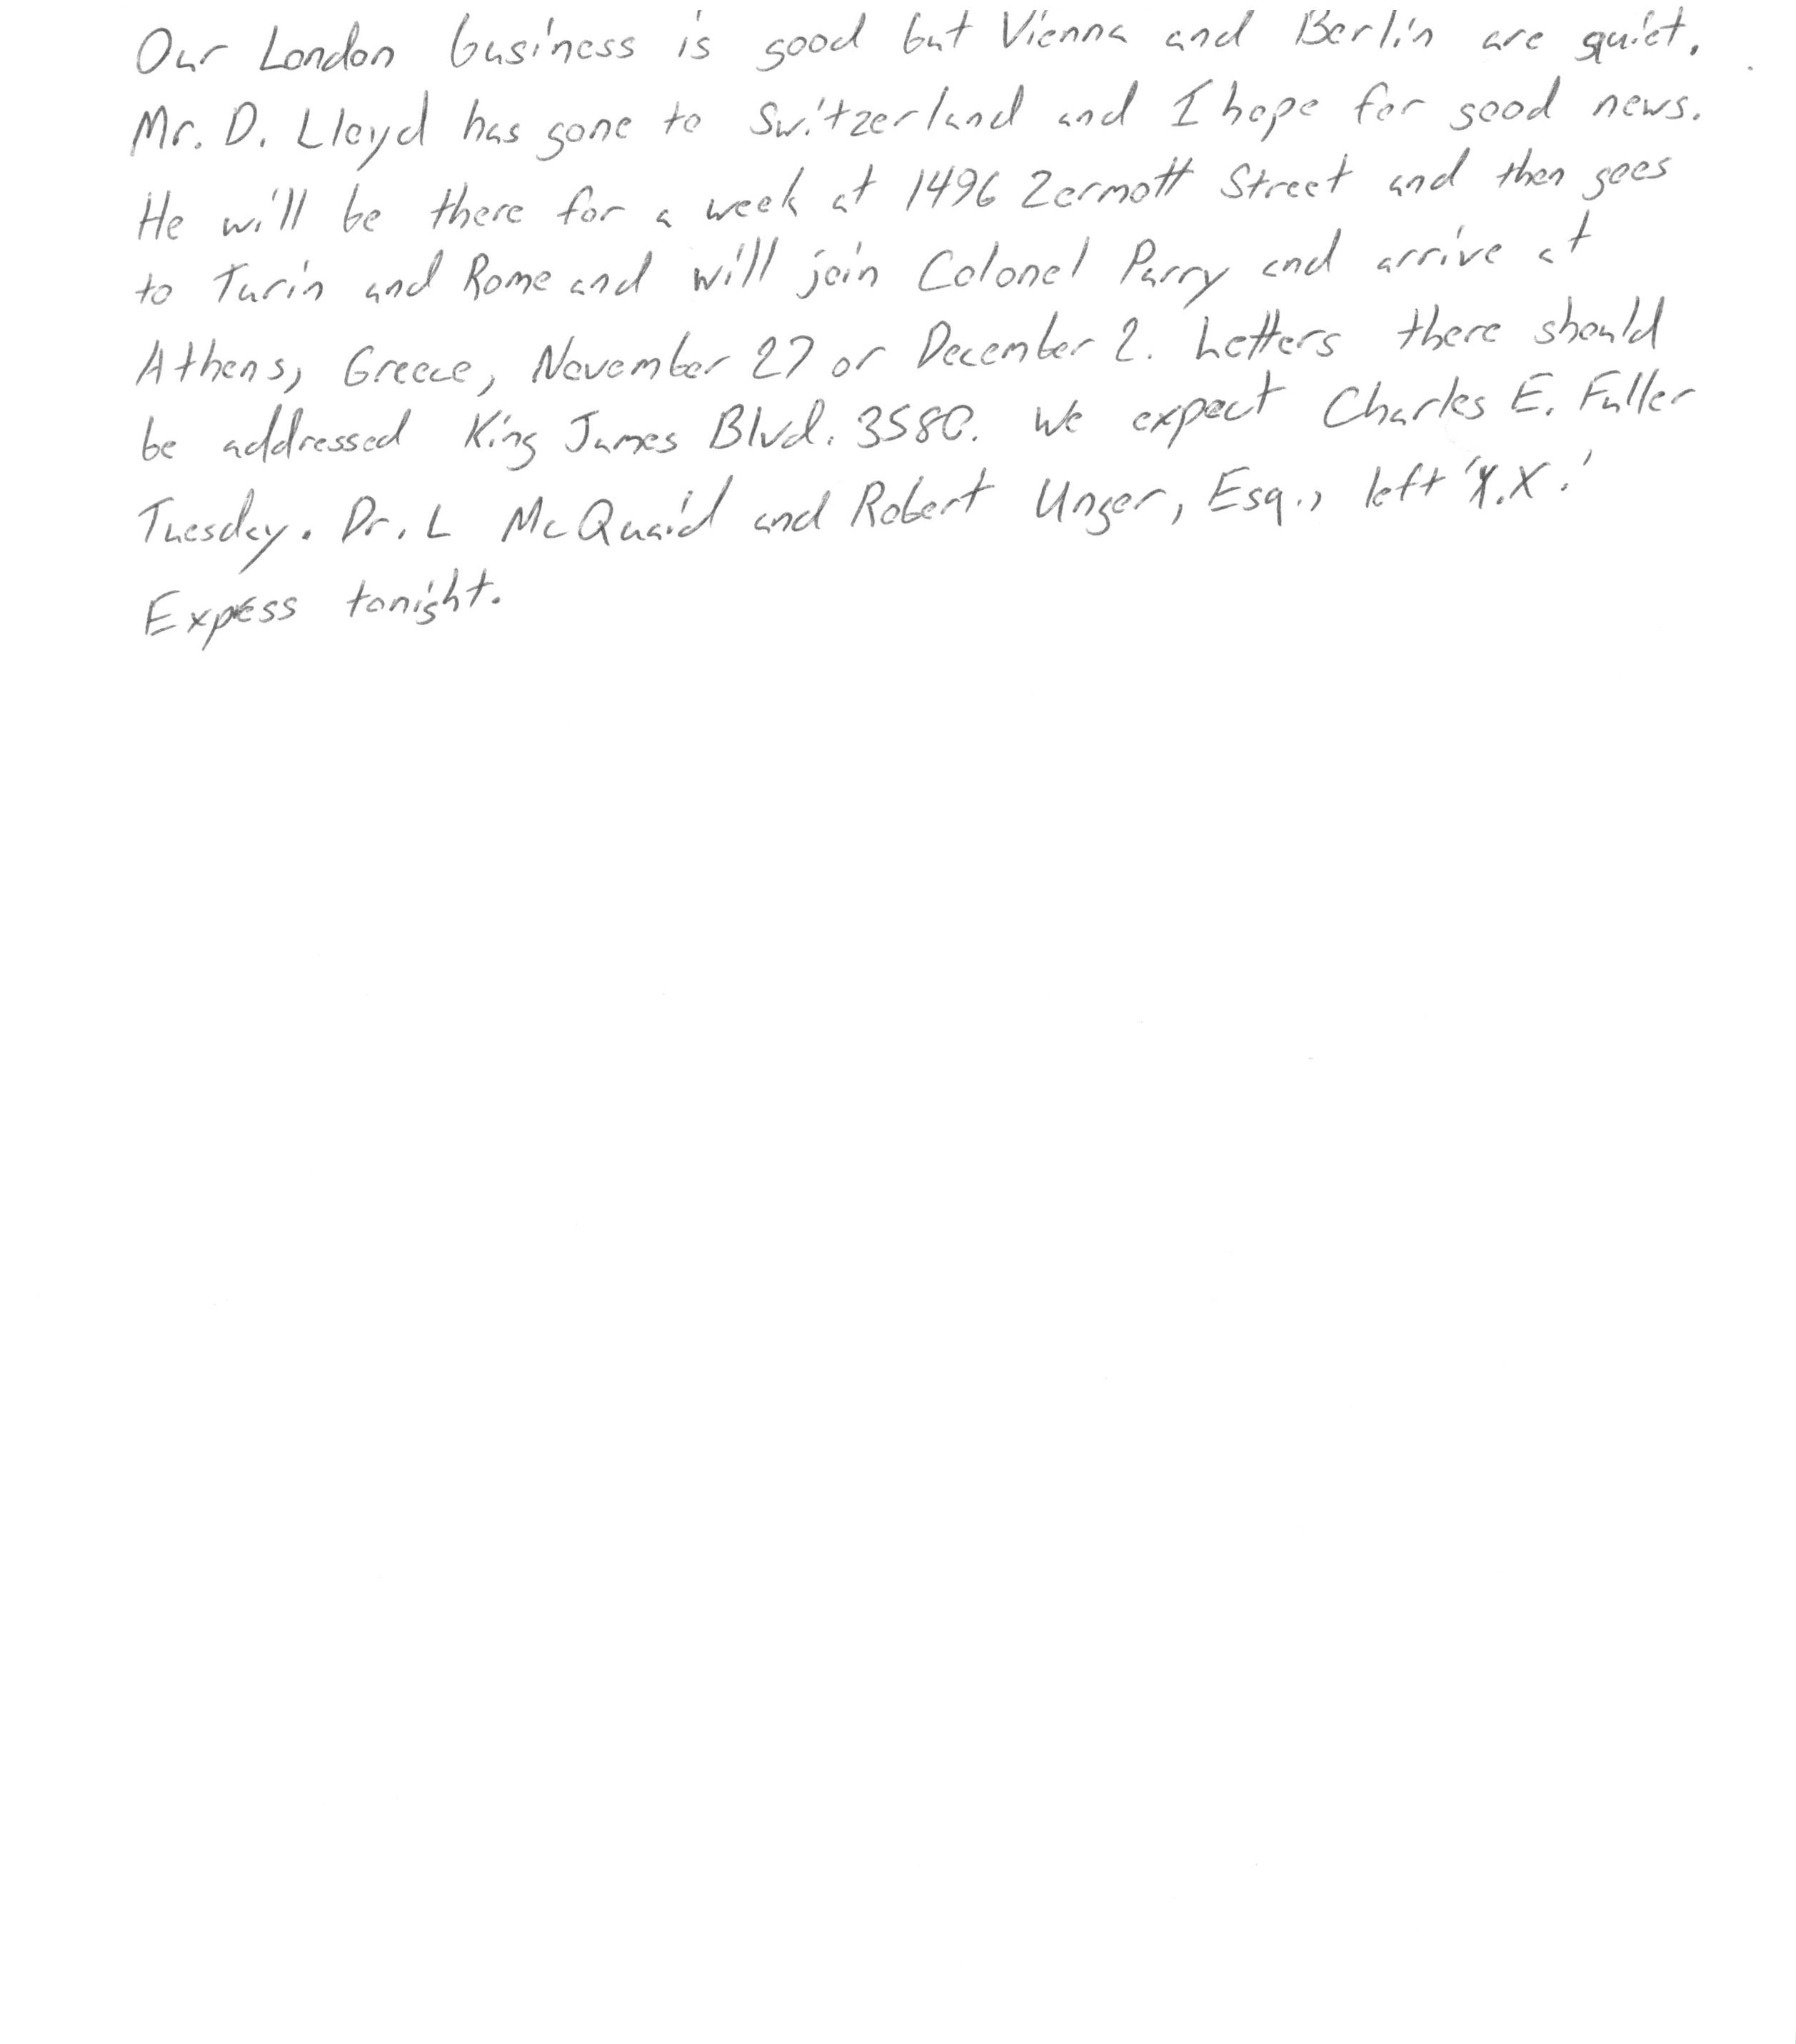 Our London business is good but Vienna and Berlin are quiet.
Mr. D. Lloyd has gone to Switzerland and I hope for good news.
He will be there for a week at 1496 Zermott Street and then goes
to Turin and Rome and will join Colonel Parry and arrive at
Athens, Greece, November 27 or December 2. Letters there should
be addressed King James Blvd. 3580. We expect Charles E. Fuller
Tuesday. Dr. L McQuaid and Robert Unger, Esq., left 'Y.X.'
Expess tonight.